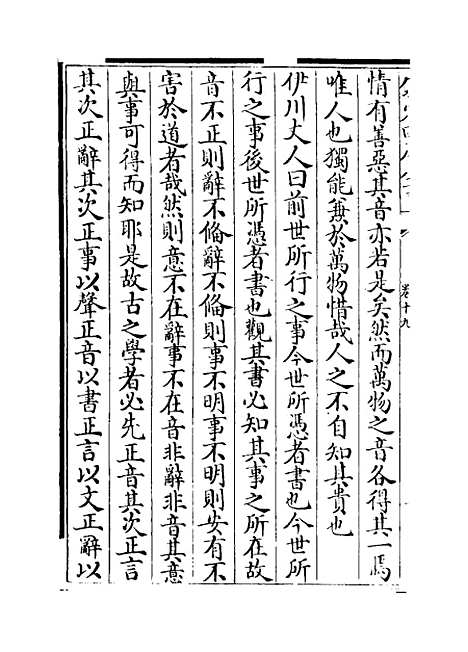 卷十九
情有善惡其音亦若是矣然而萬物之音各得其一焉
唯人也獨能兼於萬物惜哉人之不自知其貴也
伊川丈人曰前世所行之事今世所憑者書也今世所
行之事後世所憑者書也觀其書必知其事之所在故
音不正則辭不脩辭不脩則事不明事不明則安有不
害於道者哉然則意不在辭事不在音非辭非音其意
與事可得而知耶是故古之學者必先正音其次正言
其次正辭其次正事以聲正音以書正言以文正辭以